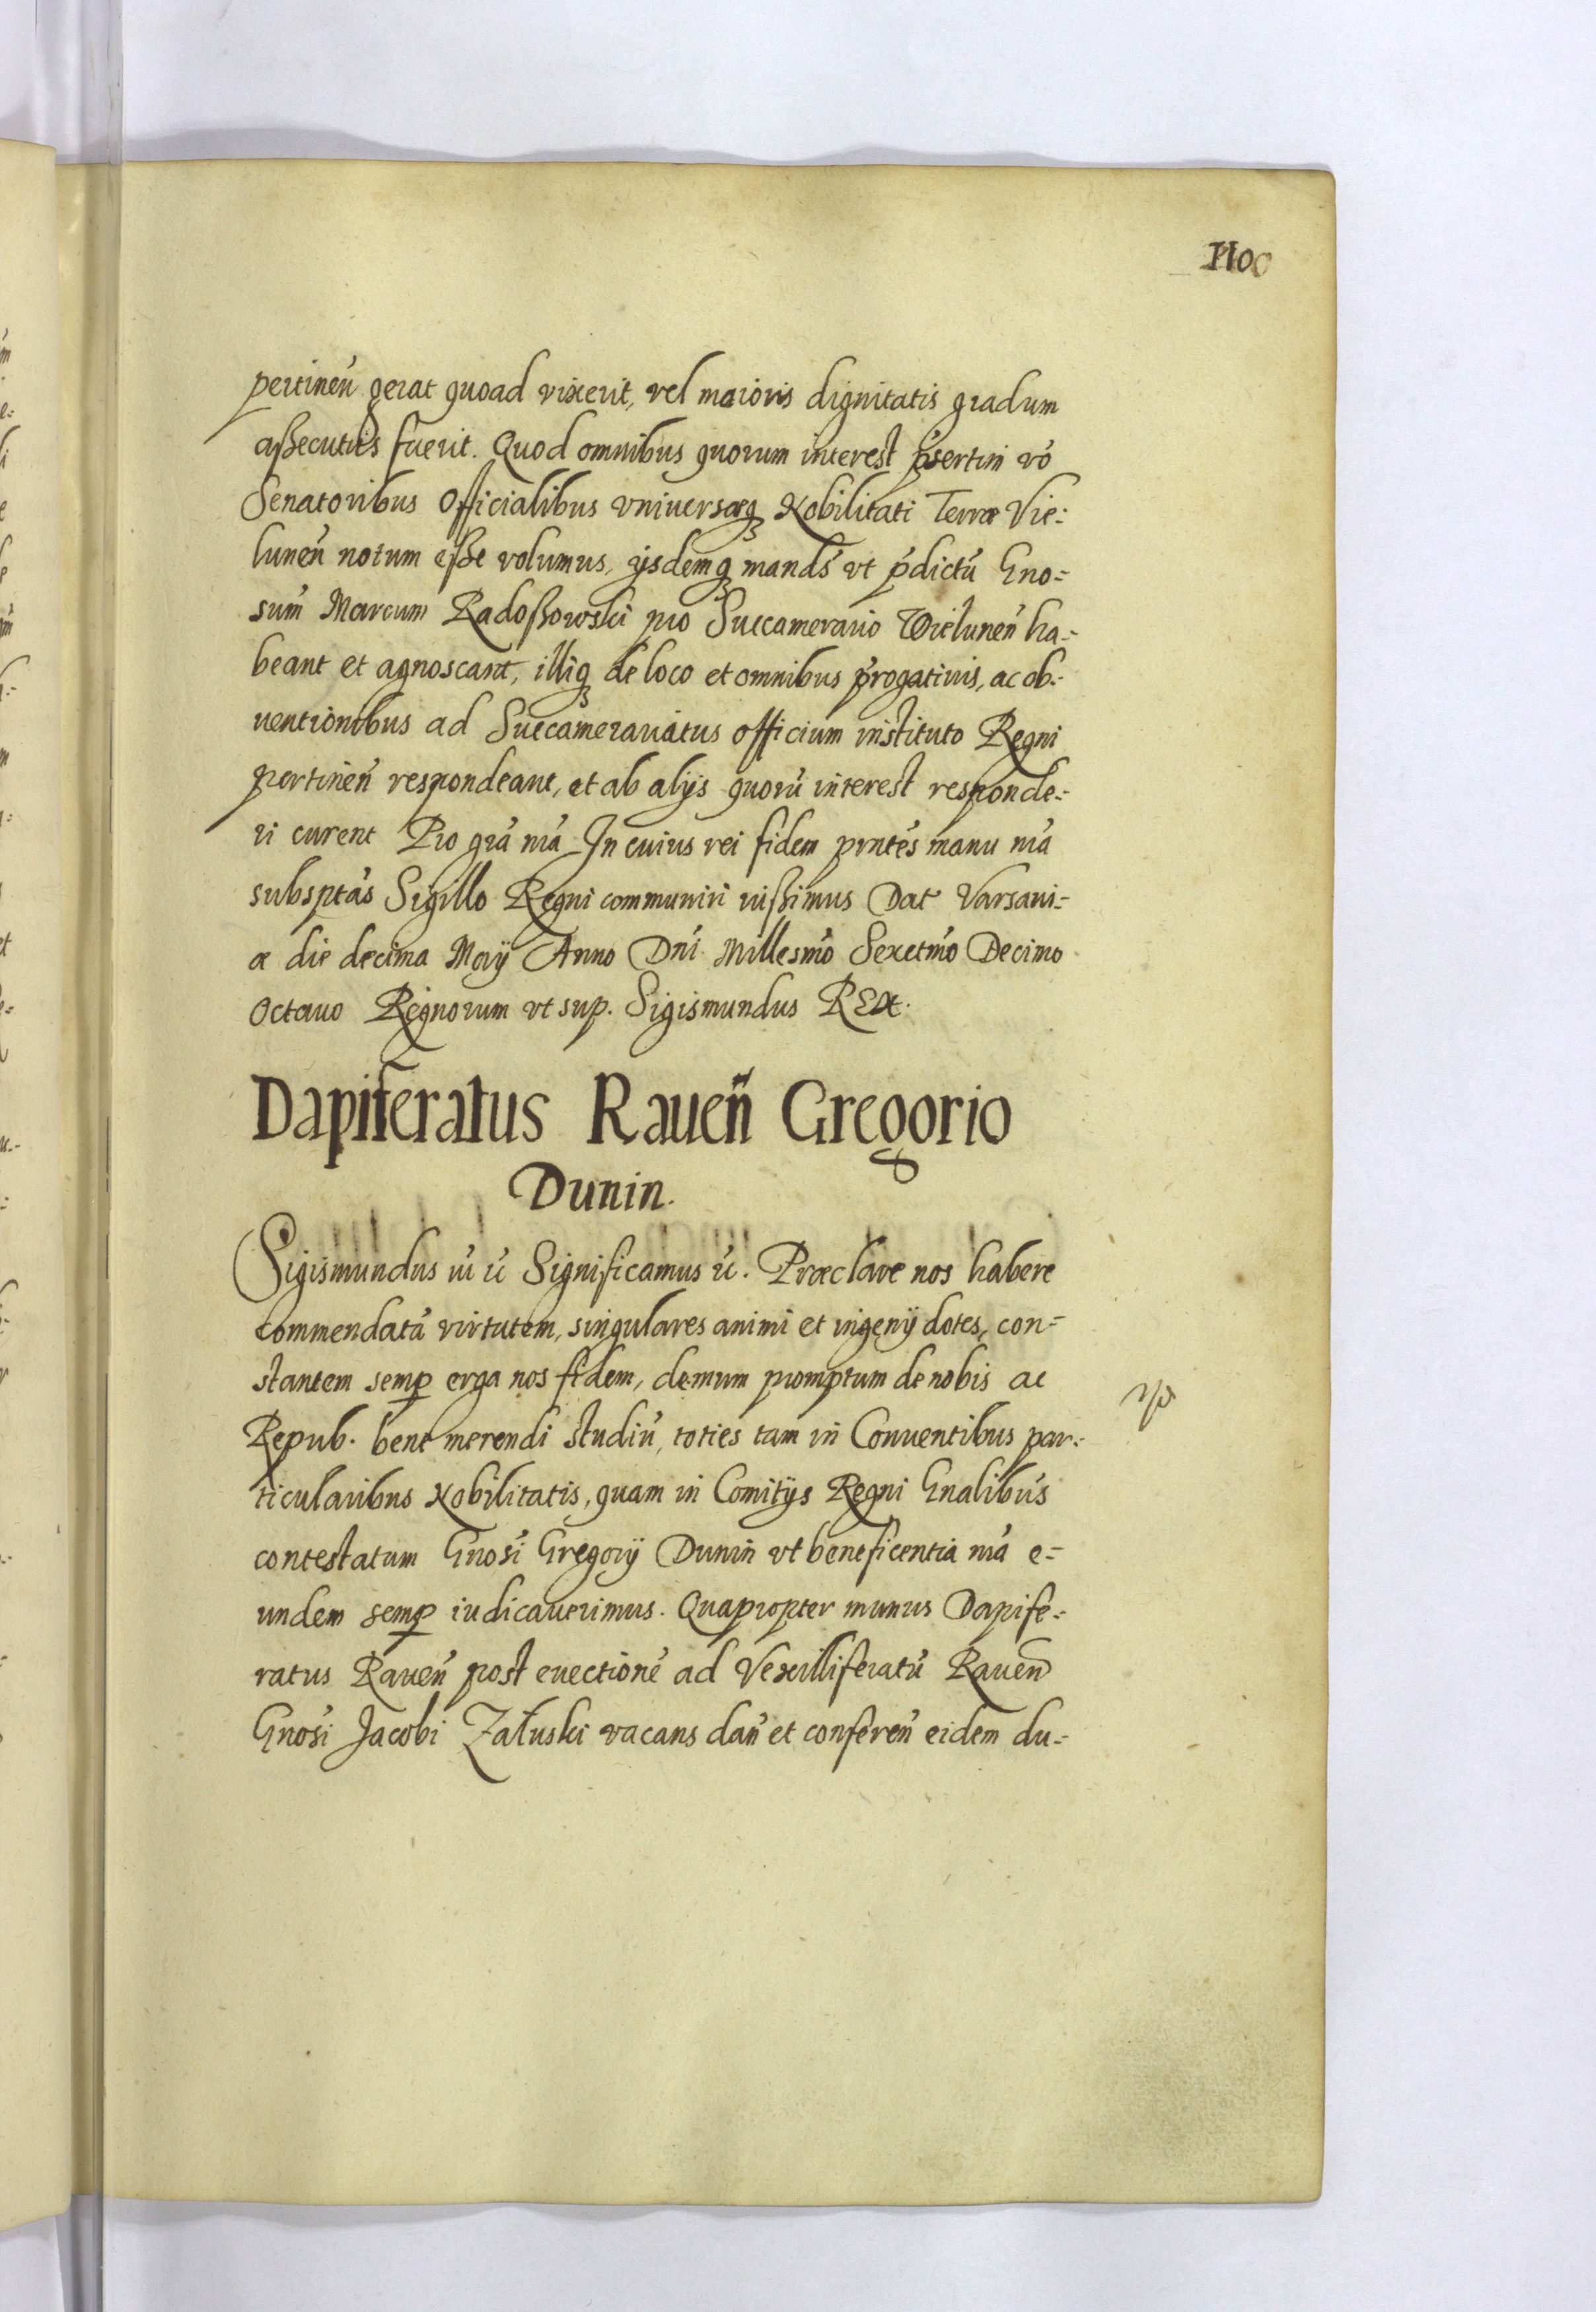 1100
pertineń gerat quoad vixerit, vel maioris dignitatis gradum
aßecutus fuerit. Quod omnibus quorum interest p̃sertim vo͂
Senatoribus Officialibus vniversaeqꝫ Nobilitati Terrae Vie:
luneń notum eße volumus, ijsdemqꝫ mands̃ vt p̃dictū Gno=
sum̃ Marcum Radoßowski pro Succamerario Wieluneń ha=
beant et agnoscant, illiqꝫ de loco et omnibus p̃rogativis, ac ob=
uentionibus ad Succamerariatus officium instituto Regni
pertineń respondeant, et ab alijs quorū interest responde=
ri curent Pro grã nrã In cuius rei fidem prntẽs manu nrã
subsptas̃ Sigillo Regni communiri iußimus Dat Varsavi=
ae die decima Maij Anno Dnĩ Millesm̃o Sexctm̃o Decimo
Octauo Regnorum vt sup. Sigismundus REX.
Dapiferatus Raueñ Gregorio
Dunin.
Sigismundus iii ẽ Significamus ẽ. Praeclare nos habere
commendatã virtutem, singulares animi et ingenij dotes, con=
stantem semp̱ erga nos fidem, demum promptum de nobis ac
Repub. bene merendi studiũ, toties tam in Conuentibus par=
ticularibus Nobilitatis, quam in Comitijs Regni Gnalibus̃
contestatum Gnosĩ Gregorij Dunin vt beneficentia nrã e=
undem semp̱ iudicauerimus. Quapropter munus Dapife=
ratus Raueñ post euectionẽ ad Vexilliferatũ Raueñ
Gnosĩ Jacobi Załuski vacans dañ et confereñ eidem du=